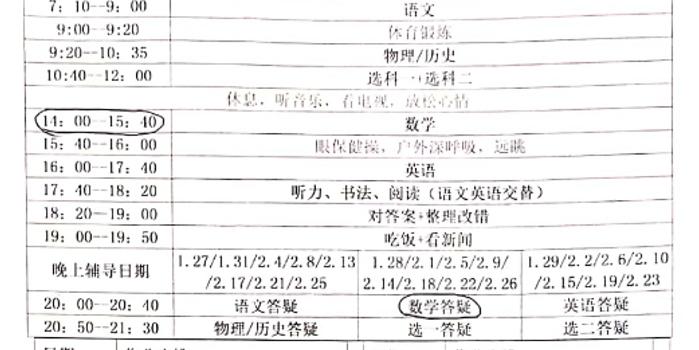 7：10--9：00 语文
9:00--9:20 体育锻炼
9:20--10：35 物理/历史
10:40--12：00 选科一+选科二
休息，听音乐，看电视，放松心情
14：00--15：40 数学
15：40--16：00 眼保健操，户外深呼吸，远眺
16：00--17：40 英语
17：40--18：20 听力、书法、阅读（语文英语交替）
18：20--19：00 对答案+整理改错
19：00--19：50 吃饭+看新闻
晚上辅导日期 1.27/1.31/2.4/2.8/2.13/2.17/2.21/2.25 1.28/2.1/2.5/2.9/2.14/2.18/2.22/2.26 1.29/2.2/2.6/2.10/2.15/2.19/2.23
20：00--20：40 语文答疑 数学答疑 英语答疑
20：50--21：30 物理/历史答疑 选一答疑 选二答疑